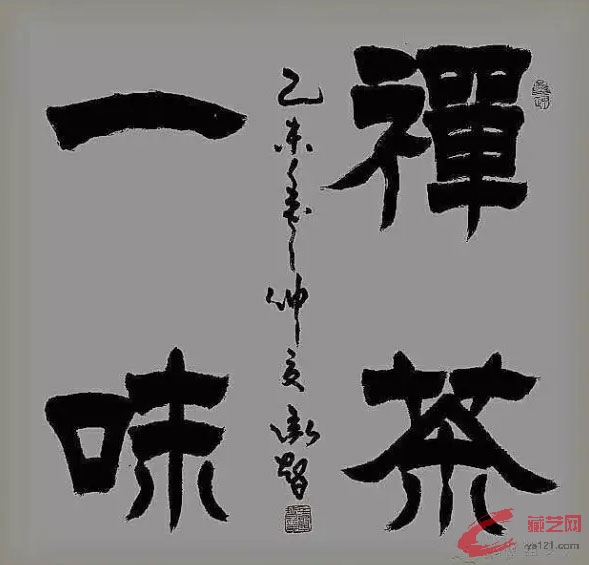 禪茶
一味
乙未
仲夏
藏艺网
ys121.com